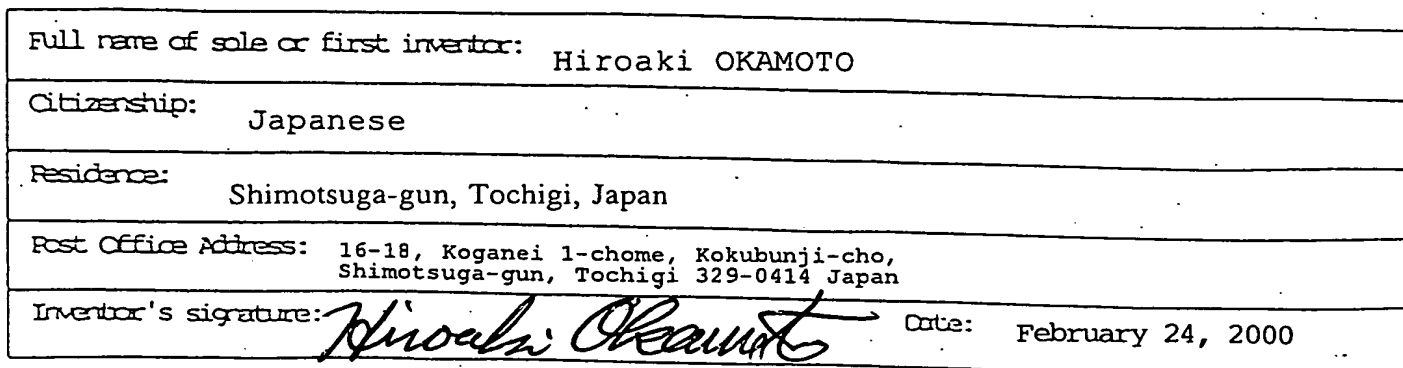 Full name of sole or first inventor: Hiroaki OKAMOTO
Citizenship: Japanese
Residence: Shimotsuga-gun, Tochigi, Japan
Post Office Address: 16-18, Koganei 1-chome, Kokubunji-cho,
Shimotsuga-gun, Tochigi 329-0414 Japan
Inventor's signature: Hiroaki Okamoto Date: February 24, 2000